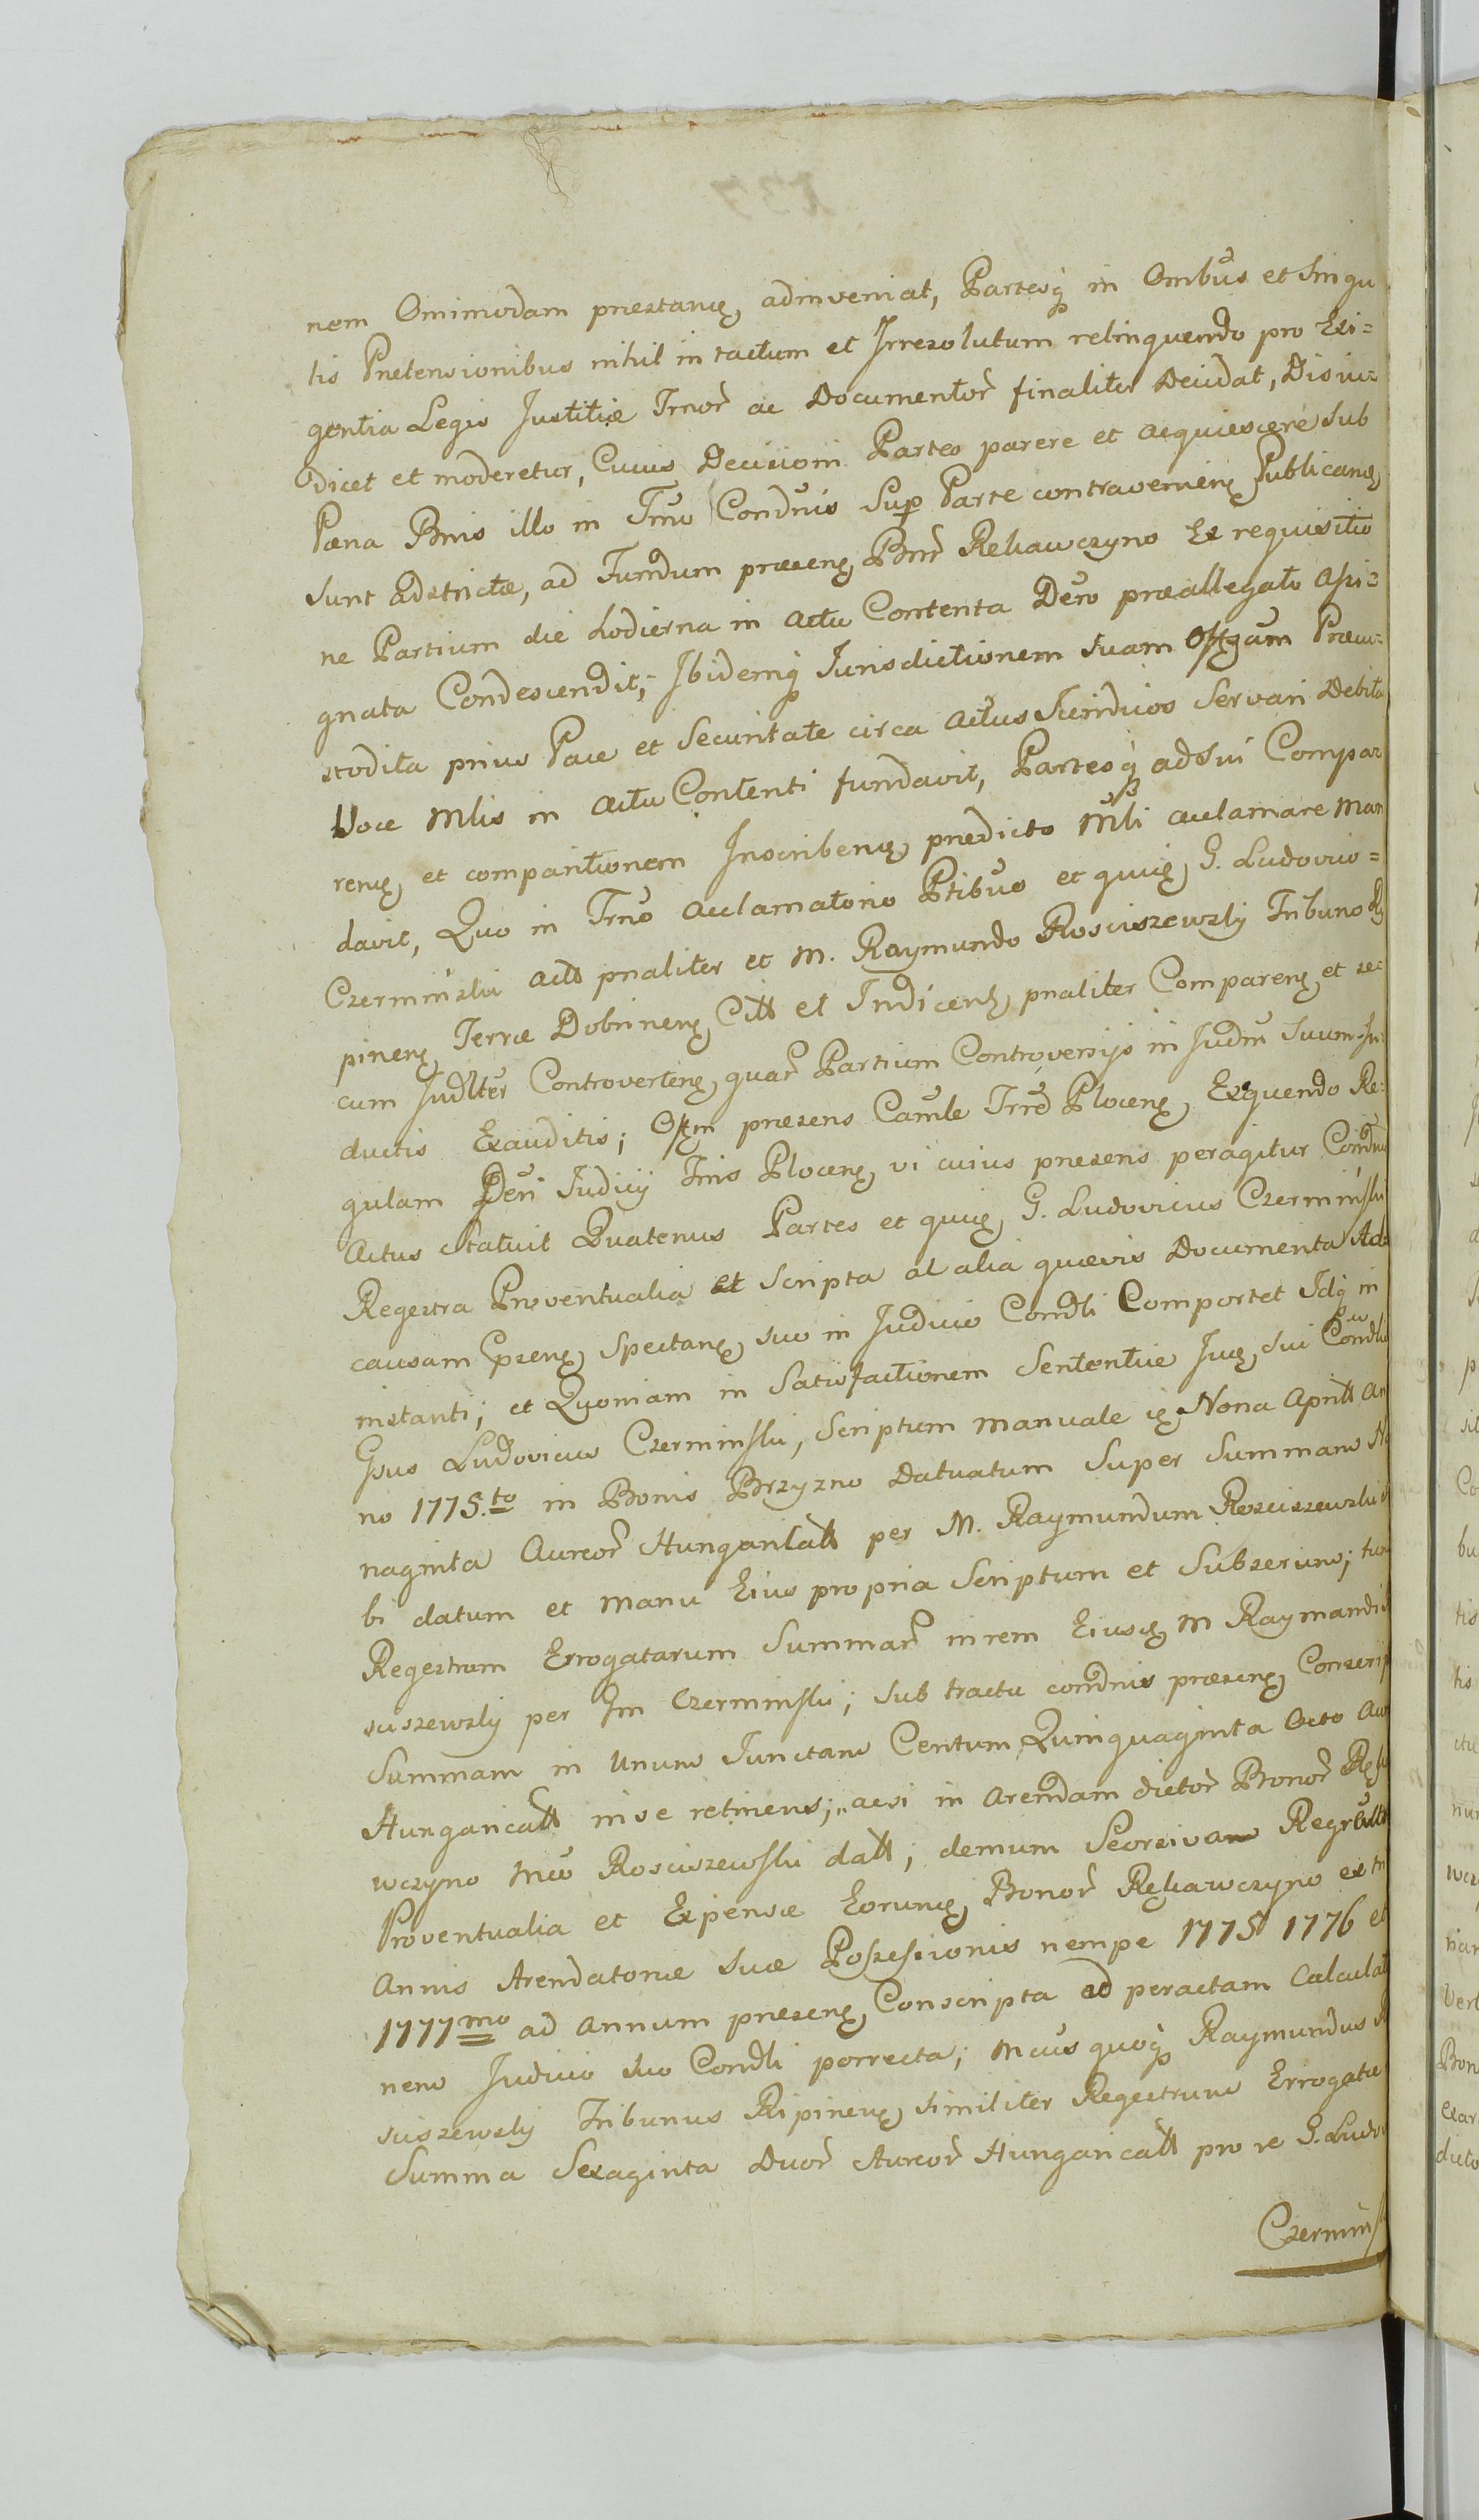 nem Omimodam præstanę adinveniat, Partesq̨ in Ombus et Singu
lis Prætensionibus nihil in tactum et Irresolutum relinquendo pro Exi=
gentia Legis Justitiæ Trnor̃ ac Documentor̃ finaliter Decidat, Disiu=
dicet et moderetur, Cuius Decisioni Partes parere et acquiescere sub
Pæna Bnis illo in Trno Condnis Sup Parte contravenienę Publicanę
sunt adstrictæ, ad Fundum præsenę Bnr̃ Rekawczyno Ex requisitio
ne Partium die hodierna in actu Contenta Dero præallegato assi=
gnata Condescendit; Ibidemq̨ Jurisdictionem suam Offgum Præcu=
stodita prius Pace et Securitate circa actus Similuos Servari Debita
Voce Mlis in actu Contenti fundavit, Partesq̨ ad sui Compar
renę et comparitionem Inscribenę prædicto Mli acclamare Man
davit, Quo in Trno acclamatorio Ptibus et quię G. Ludovico=
Czermiński actt pnaliter et M. Raymundo Rosciszewsky Tribuno Ry
pinenę Terræ Dobrinenę Citt et Indicenę pnaliter Comparenę et se=
cum Judlter Controvertenę quar̃ Partium Controversijs in Judm Suum In=
ductis Exauditis; Offm præsens Camle Trrê Plocenę Exequendo Re=
gulam Deri Judicij Trris Plocenę vi cuius præsens peragitur Condnis
Actus Statuit Quatenus Partes et quię G. Ludovicus Czermiński
Regestra Proventualia et Scripta al alia quævis Documenta Ad
causam Præsenę Spectanę suo in Judicio Condli Comportet Idq̨ in
instanti; et Quoniam in Satisfactionem Sententiæ Jucę sui Condlis
Gsus Ludovicus Czerminski, Scriptum manuale ię Nona Aprill an
no 1775.to in Bonis Brzyzno Datuatum Super Summam No
naginta Aureor̃ Hungaricall per M. Raymundum Rosciszewski si
bi datum et manu Eius propria Scriptum et Subscrium; tum
Regestrum Errogatarum Summar̃ in rem Eiusę M Raymundi Ro
sciszewsky per Gm Czerminski; sub tractu condnis præsenę Conscrip
Summam in Unum Junctam Centum Quinquaginta Octo Aur
Hungaricall in se retinens; acsi in Arendam dictor̃ Bonor̃ Ręka
wczyno Mco Rosciszewski datt; demum Seorsivam Regra
Proventualia et Expensæ Eorunę Bonor̃ Rękawczyno ex tri
Annis Arendatoriæ suæ Possessionis nempe 1775 1776 et
1777mo ad annum præsenę Conscripta ad peractam Calculat
nem Judicio suo Condli porrecta; Mcus quoq̨ Raymundus Ro
sciszewsky Tribunus Ripinenę similiter Regestrum Errogatæ
Summa Sexaginta Duor̃ Aureor̃ Hungaricall pro re G. Ludov
Czermińs